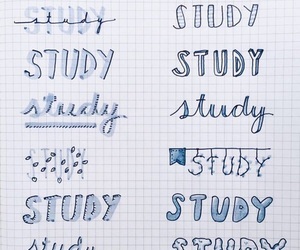 study STUDY
STUDY STUDY
study study
STUDY STUDY
STUDY STUDY
study STUDY